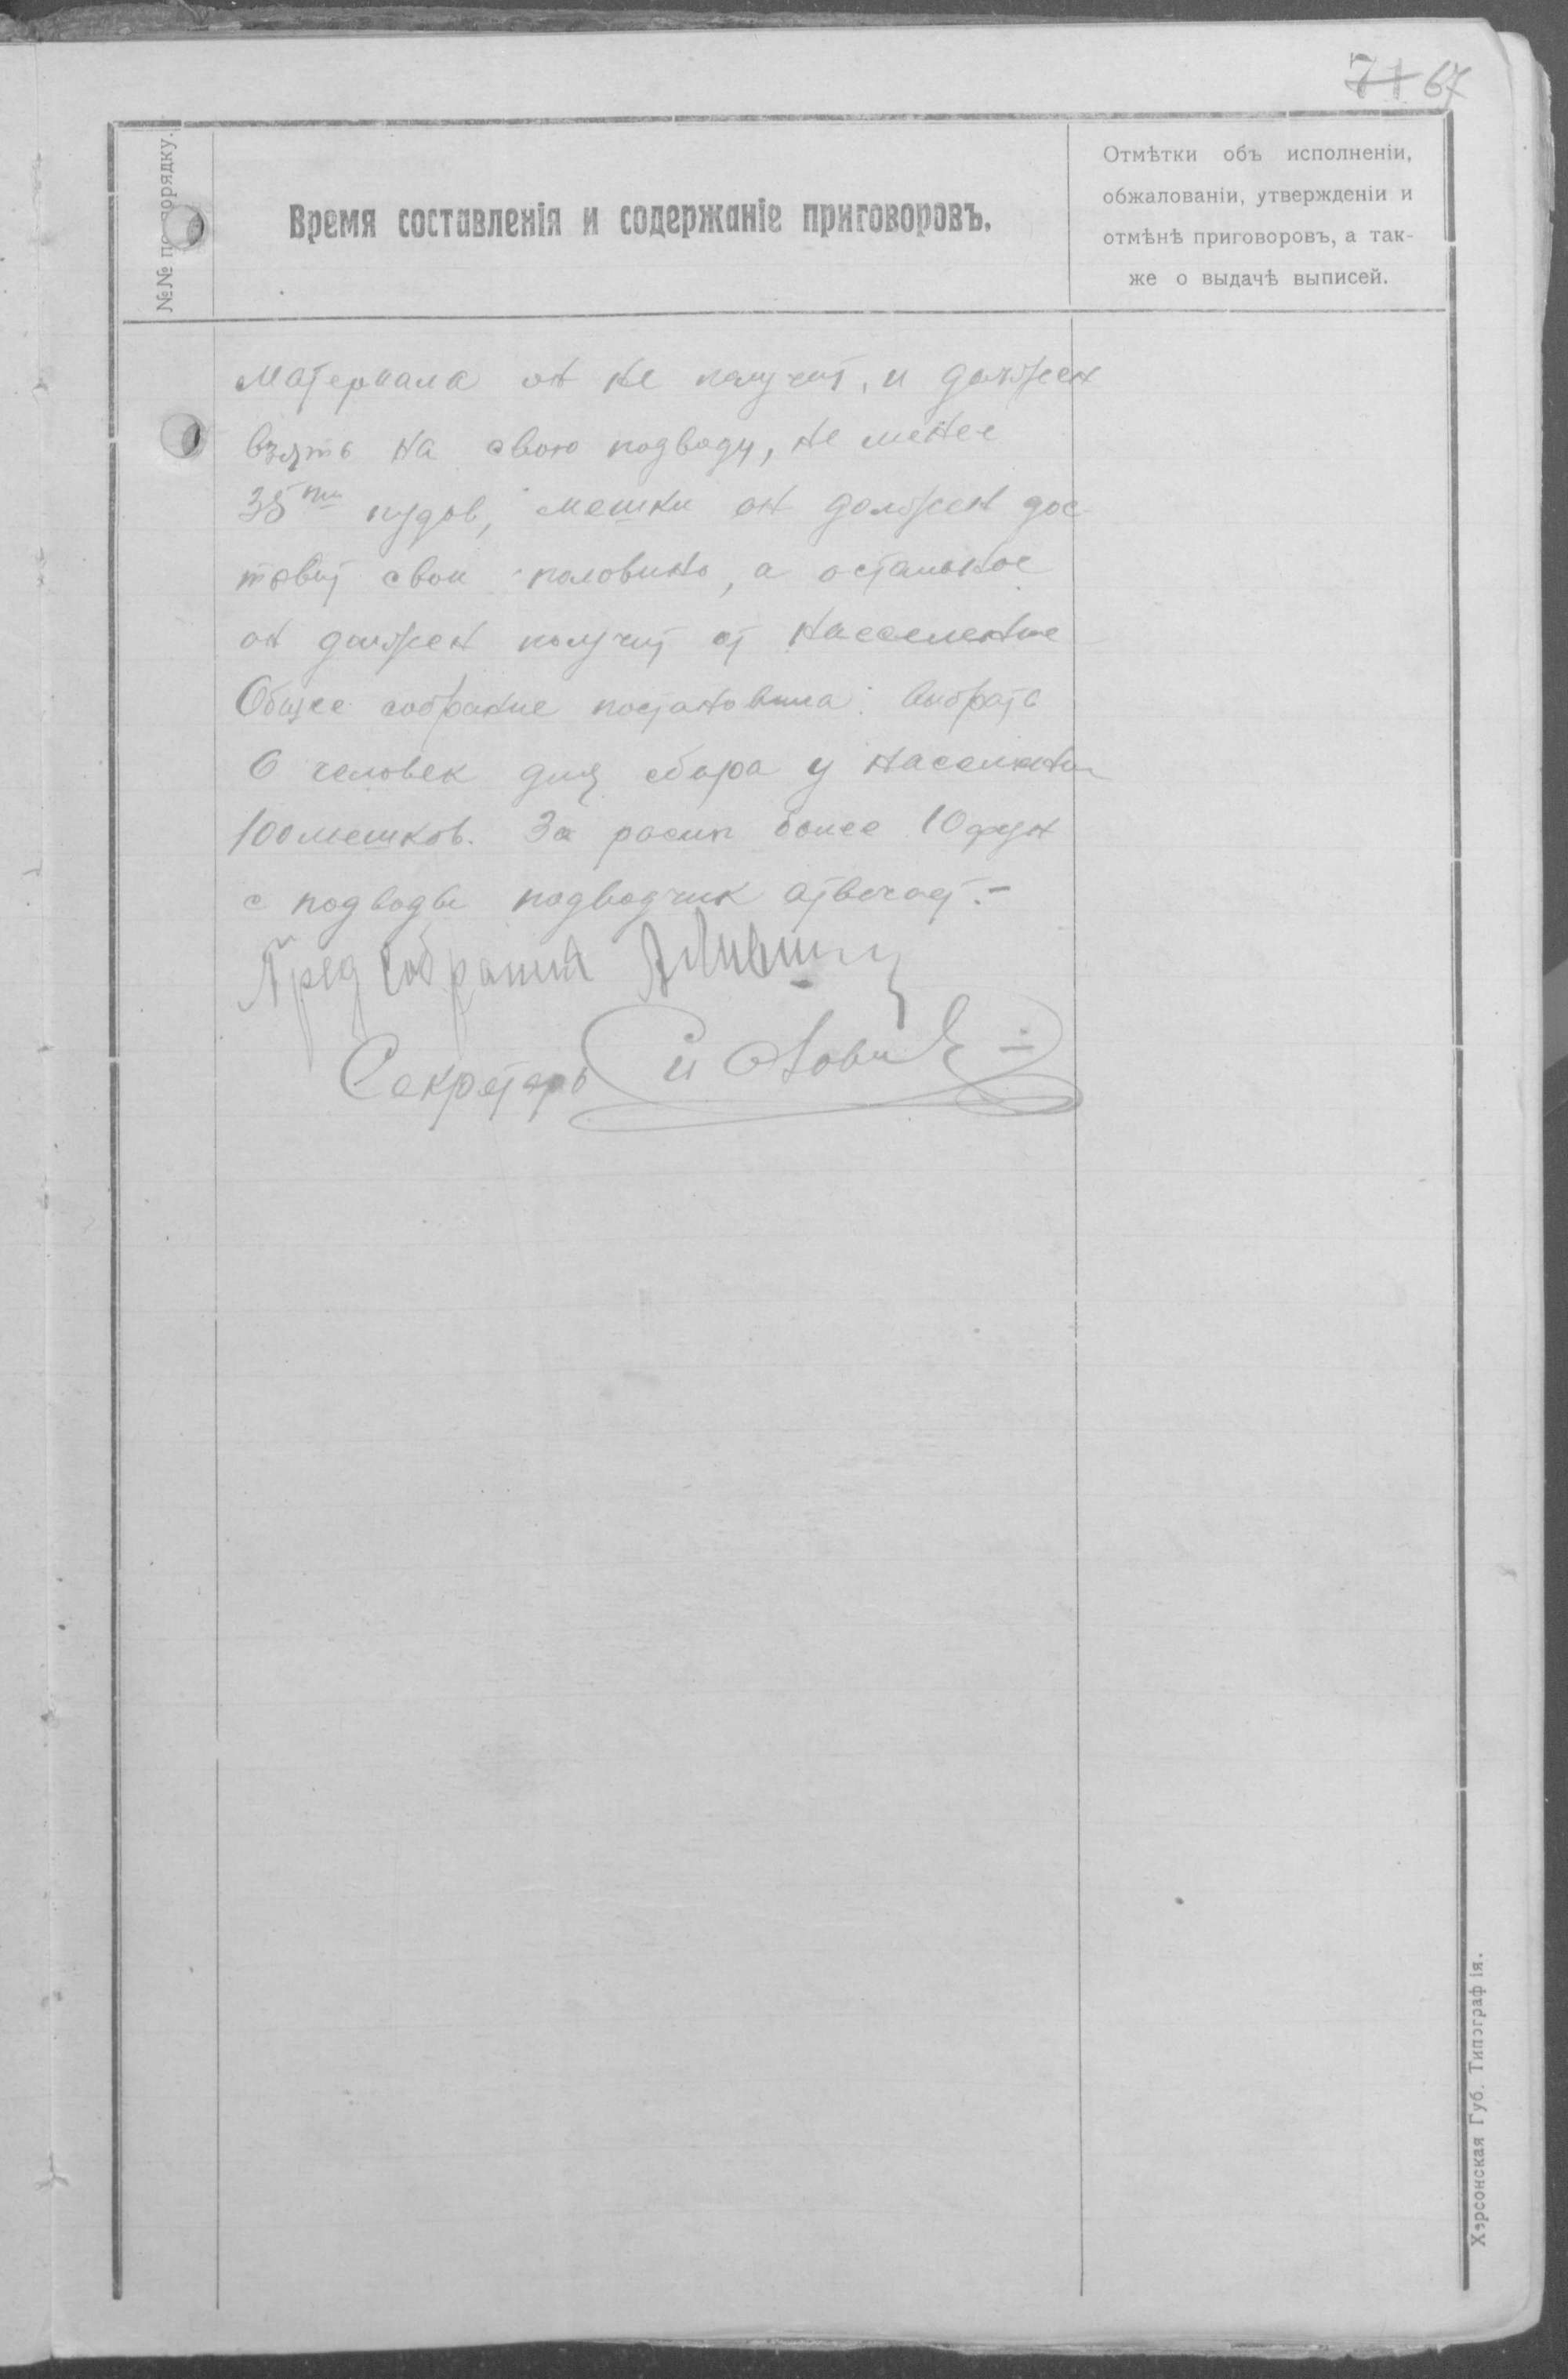 71 67
№№ по порядку.
Время составленія и содержаніе приговоровъ.
Отмѣтки объ исполненіи,
обжалованіи, утвержденіи и
отмѣнѣ приговоровъ, а так-
же о выдачѣ выписей.
материала он не получит, и должен
взять на свою подводу, не менее
35ти пудов, мешки он должен дос-
тавит свои половино, а остальное
он должен получит от население
Общее собрание постановила: выбрать
6 человек для сбора у населения
100 мешков. За расип более 10 фун
с подводы подводчик отвечает.-
Пред Собрания
Секретарь
Херсонская Губ. Типографія.